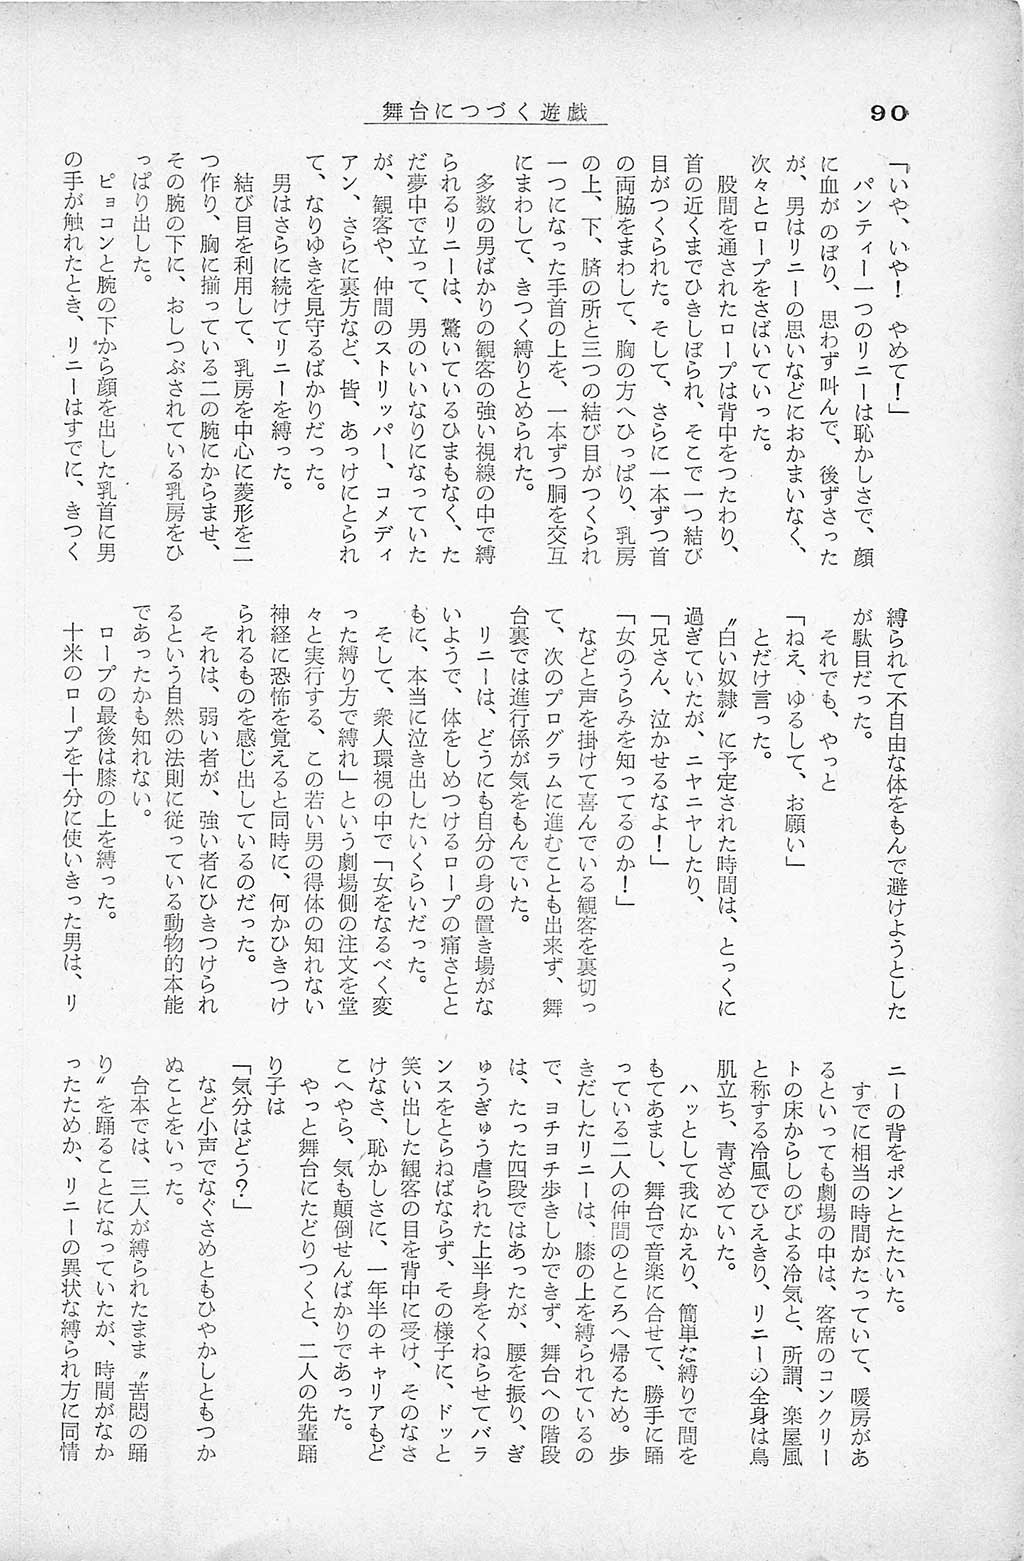 舞台につづく遊戯
90
「いや、いや！　やめて！」
　パンティー一つのリニーは恥かしさで、顔
に血がのぼり、思わず叫んで、後ずさった
が、男はリニーの思いなどにおかまいなく、
次々とロープをさばいていった。
　股間を通されたロープは背中をつたわり、
首の近くまでひきしぼられ、そこで一つ結び
目がつくられた。そして、さらに一本ずつ首
の両脇をまわして、胸の方へひっぱり、乳房
の上、下、臍の所と三つの結び目がつくられ
一つになった手首の上を、一本ずつ胴を交互
にまわして、きつく縛りとめられた。
　多数の男ばかりの観客の強い視線の中で縛
られるリニーは、驚いているひまもなく、た
だ夢中で立って、男のいいなりになっていた
が、観客や、仲間のストリッパー、コメディ
アン、さらに裏方など、皆、あっけにとられ
て、なりゆきを見守るばかりだった。
　男はさらに続けてリニーを縛った。
　結び目を利用して、乳房を中心に菱形を二
つ作り、胸に揃っている二の腕にからませ、
その腕の下に、おしつぶされている乳房をひ
っぱり出した。
　ピョコンと腕の下から顔を出した乳首に男
の手が触れたとき、リニーはすでに、きつく
縛られて不自由な体をもんで避けようとした
が駄目だった。
　それでも、やっと
「ねえ、ゆるして、お願い」
　とだけ言った。
　〝白い奴隷〟に予定された時間は、とっくに
過ぎていたが、ニヤニヤしたり、
「兄さん、泣かせるなよ！」
「女のうらみを知ってるのか！」
　などと声を掛けて喜んでいる観客を裏切っ
て、次のプログラムに進むことも出来ず、舞
台裏では進行係が気をもんでいた。
　リニーは、どうにも自分の身の置き場がな
いようで、体をしめつけるロープの痛さとと
もに、本当に泣き出したいくらいだった。
　そして、衆人環視の中で「女をなるべく変
った縛り方で縛れ」という劇場側の注文を堂
々と実行する、この若い男の得体の知れない
神経に恐怖を覚えると同時に、何かひきつけ
られるものを感じ出しているのだった。
　それは、弱い者が、強い者にひきつけられ
るという自然の法則に従っている動物的本能
であったかも知れない。
　ロープの最後は膝の上を縛った。
　十米のロープを十分に使いきった男は、リ
ニーの背をポンとたたいた。
　すでに相当の時間がたっていて、暖房があ
るといっても劇場の中は、客席のコンクリー
トの床からしのびよる冷気と、所謂、楽屋風
と称する冷風でひえきり、リニーの全身は鳥
肌立ち、青ざめていた。
　ハッとして我にかえり、簡単な縛りで間を
もてあまし、舞台で音楽に合せて、勝手に踊
っている二人の仲間のところへ帰るため。歩
きだしたリニーは、膝の上を縛られているの
で、ヨチヨチ歩きしかできず、舞台への階段
は、たった四段ではあったが、腰を振り、ぎ
ゅうぎゅう虐られた上半身をくねらせてバラ
ンスをとらねばならず、その様子に、ドッと
笑い出した観客の目を背中に受け、そのなさ
けなさ、恥かしさに、一年半のキャリアもど
こへやら、気も顛倒せんばかりであった。
　やっと舞台にたどりつくと、二人の先輩踊
り子は
「気分はどう？」
　など小声でなぐさめともひやかしともつか
ぬことをいった。
　台本では、三人が縛られたまま〝苦悶の踊
り〟を踊ることになっていたが、時間がなか
ったためか、リニーの異状な縛られ方に同情